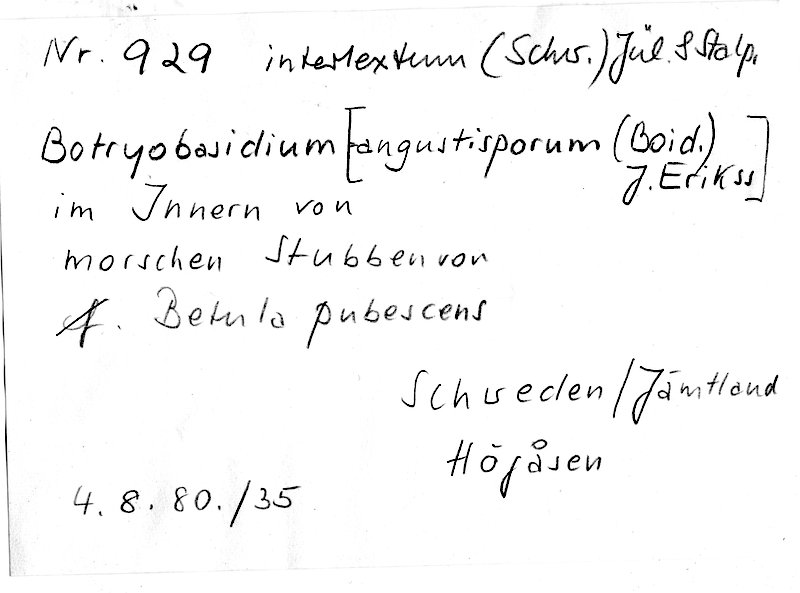 Nr. 929 intertextum (Schw.) Jül. & Stalp.
Botryobasidium [angustisporum (Boid.)
J. Erikss]
im Innern von
morschen Stubben von
Betula pubescens
Schweden/Jämtland
Högåsen
4. 8. 80./35